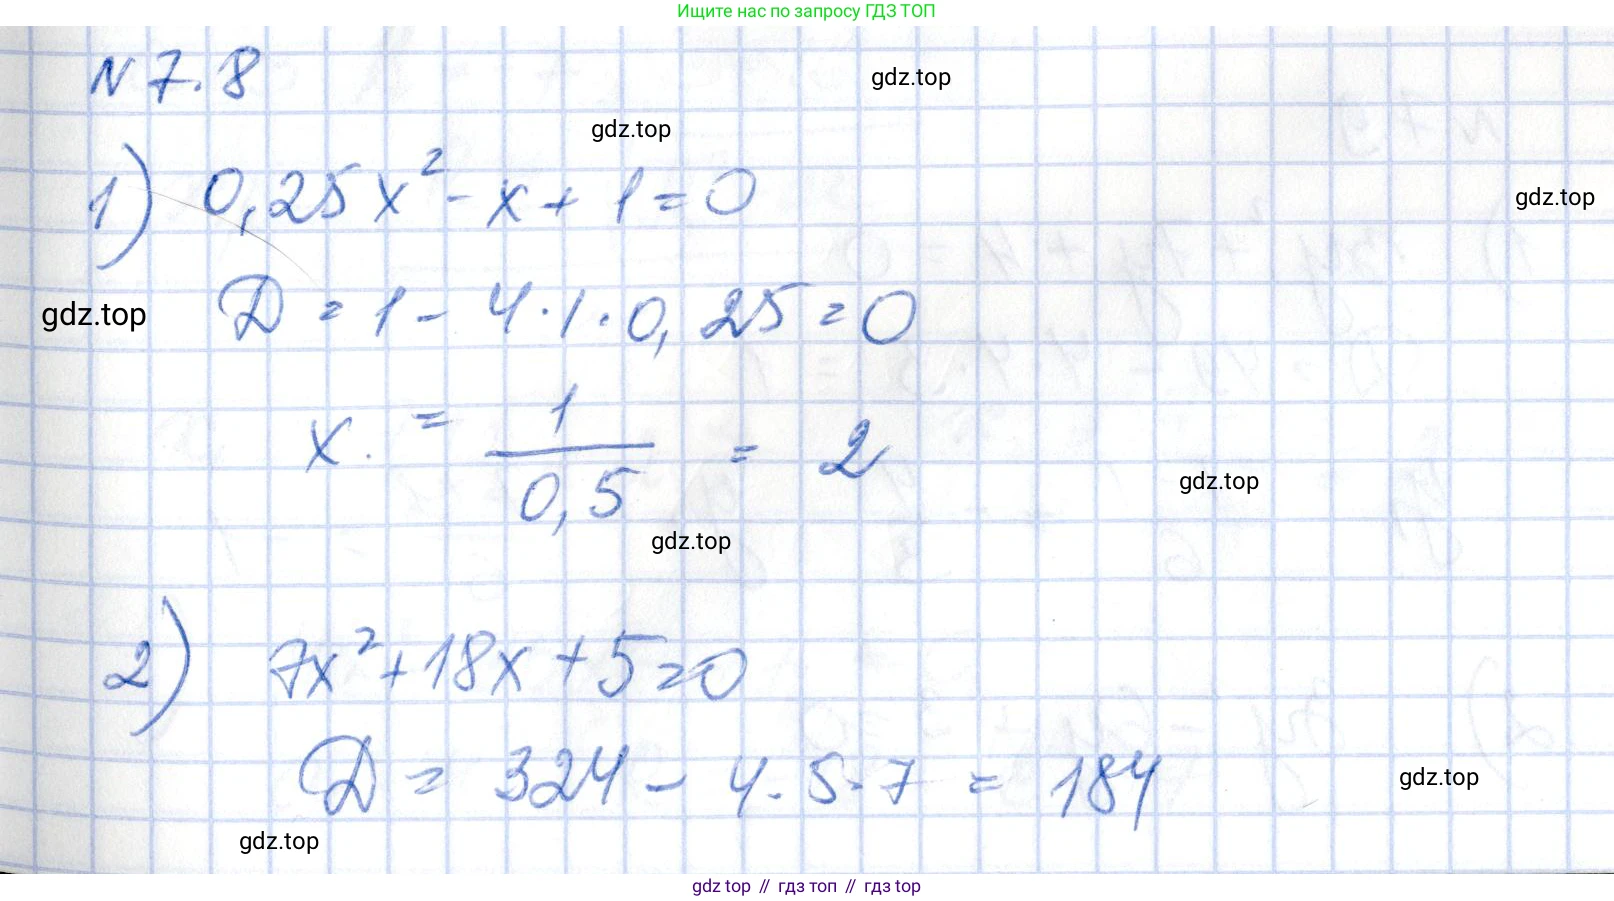 Ищите нас по запросу ГДЗ ТОП
N 7.8
gdz.top
gdz.top
1) 0,25x² - x + 1 = 0
gdz.top
gdz.top
D = 1 - 4·1·0,25 = 0
x = 1/0,5 = 2
gdz.top
gdz.top
2) 7x² + 18x + 5 = 0
D = 324 - 4·5·7 = 184
gdz.top
gdz.top
gdz top // гдз топ // гдз top